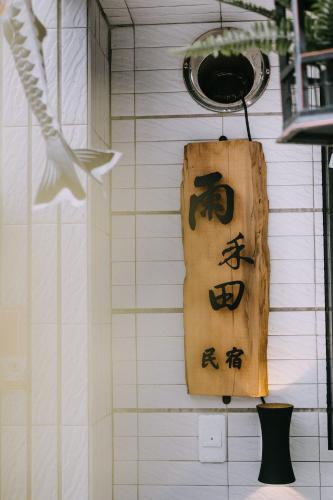 雨
禾
田
民宿